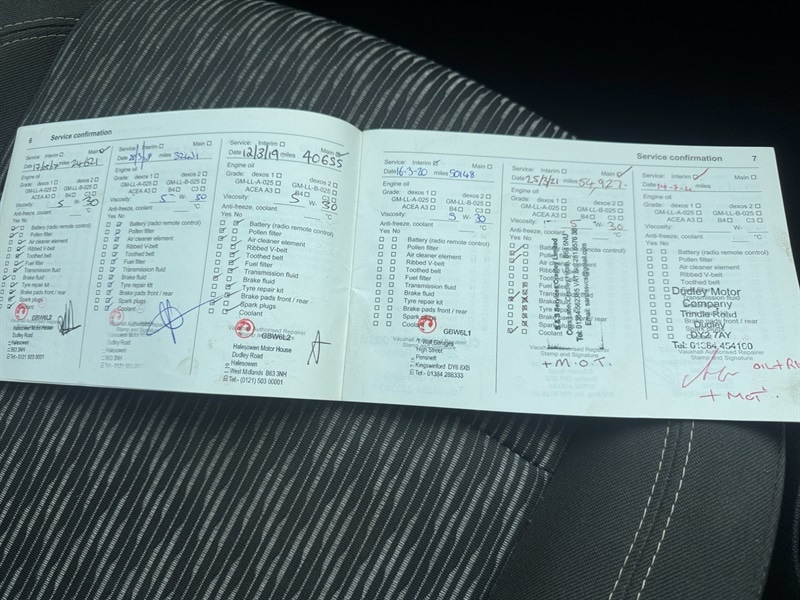 6 Service confirmation
Service: Interim Main
Date miles 24621
Engine oil
Grade: dexos 1 dexos 2
GM-LL-A-025 GM-LL-B-025
ACEA A3 B4 C3
Viscosity: 5 W- 30
Anti-freeze, coolant °C
Yes No
Battery (radio remote control)
Pollen filter
Air cleaner element
Ribbed V-belt
Toothed belt
Fuel filter
Transmission fluid
Brake fluid
Tyre repair kit
Brake pads front / rear
Spark plugs
Coolant
GBW6L2
Halesowen Motor House
Dudley Road
Halesowen
B63 3NH
Tel:- 0121 503 0001
Service: Interim Main
Date miles
Engine oil
Grade: dexos 1 dexos 2
GM-LL-A-025 GM-LL-B-025
ACEA A3 B4 C3
Viscosity: 5 W- 30
Anti-freeze, coolant °C
Yes No
Battery (radio remote control)
Pollen filter
Air cleaner element
Ribbed V-belt
Toothed belt
Fuel filter
Transmission fluid
Brake fluid
Tyre repair kit
Brake pads front / rear
Spark plugs
Coolant
Service: Interim Main
Date 12/3/19 miles 40655
Engine oil
Grade: dexos 1 dexos 2
GM-LL-A-025 GM-LL-B-025
ACEA A3 B4 C3
Viscosity: 5 W- 30
Anti-freeze, coolant °C
Yes No
Battery (radio remote control)
Pollen filter
Air cleaner element
Ribbed V-belt
Toothed belt
Fuel filter
Transmission fluid
Brake fluid
Tyre repair kit
Brake pads front / rear
Spark plugs
Coolant
Vauxhall Authorised Repairer
GBW6L2
Halesowen Motor House
Dudley Road
Halesowen
West Midlands B63 3NH
Tel:- (0121) 503 00001
Service confirmation 7
Service: Interim Main
Date 16-3-20 miles 50148
Engine oil
Grade: dexos 1 dexos 2
GM-LL-A-025 GM-LL-B-025
ACEA A3 B4 C3
Viscosity: 5 W- 30
Anti-freeze, coolant °C
Yes No
Battery (radio remote control)
Pollen filter
Air cleaner element
Ribbed V-belt
Toothed belt
Fuel filter
Transmission fluid
Brake fluid
Tyre repair kit
Brake pads front / rear
Spark plugs
Coolant
GBW6L1
High Street
Pensnett
Kingswinford DY6 8XB
Tel:- 01384
Service: Interim Main
Date 25/3/21 miles 54,927
Engine oil
Grade: dexos 1 dexos 2
GM-LL-A-025 GM-LL-B-025
ACEA A3 B4 C3
Viscosity: W- 30
Anti-freeze, coolant °C
Yes No
Services Central Limited
Stamp and Signature
+ M.O.T.
Service: Interim Main
Date miles
Engine oil
Grade: dexos 1 dexos 2
GM-LL-A-025 GM-LL-B-025
ACEA A3 B4 C3
Viscosity: W-
Anti-freeze, coolant °C
Yes No
Battery (radio remote control)
Pollen filter
Air cleaner element
Ribbed V-belt
Toothed belt
Fuel filter
Dudley Motor
Company
Trindle Road
Dudley
DY2 7AY
Tel: 01384 454100
Vauxhall Authorised Repairer
Stamp and Signature
OIL +
+ MOT.